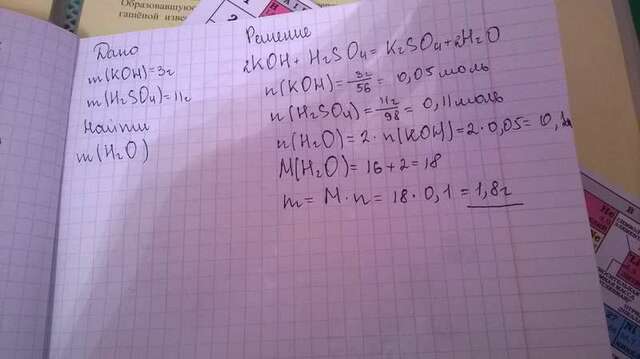 Образовавшуюс
гашёной извес
Дано
m(KOH)=3г
m(H₂SO₄)=11г
Найти
m(H₂O)
Решение
2KOH + H₂SO₄ = K₂SO₄ + 2H₂O
n(KOH) = 3г/56 = 0,05 моль
n(H₂SO₄) = 11г/98 = 0,11 моль
n(H₂O) = 2 · n(KOH) = 2 · 0,05 = 0,1
M(H₂O) = 16 + 2 = 18
m = M · n = 18 · 0,1 = 1,8г